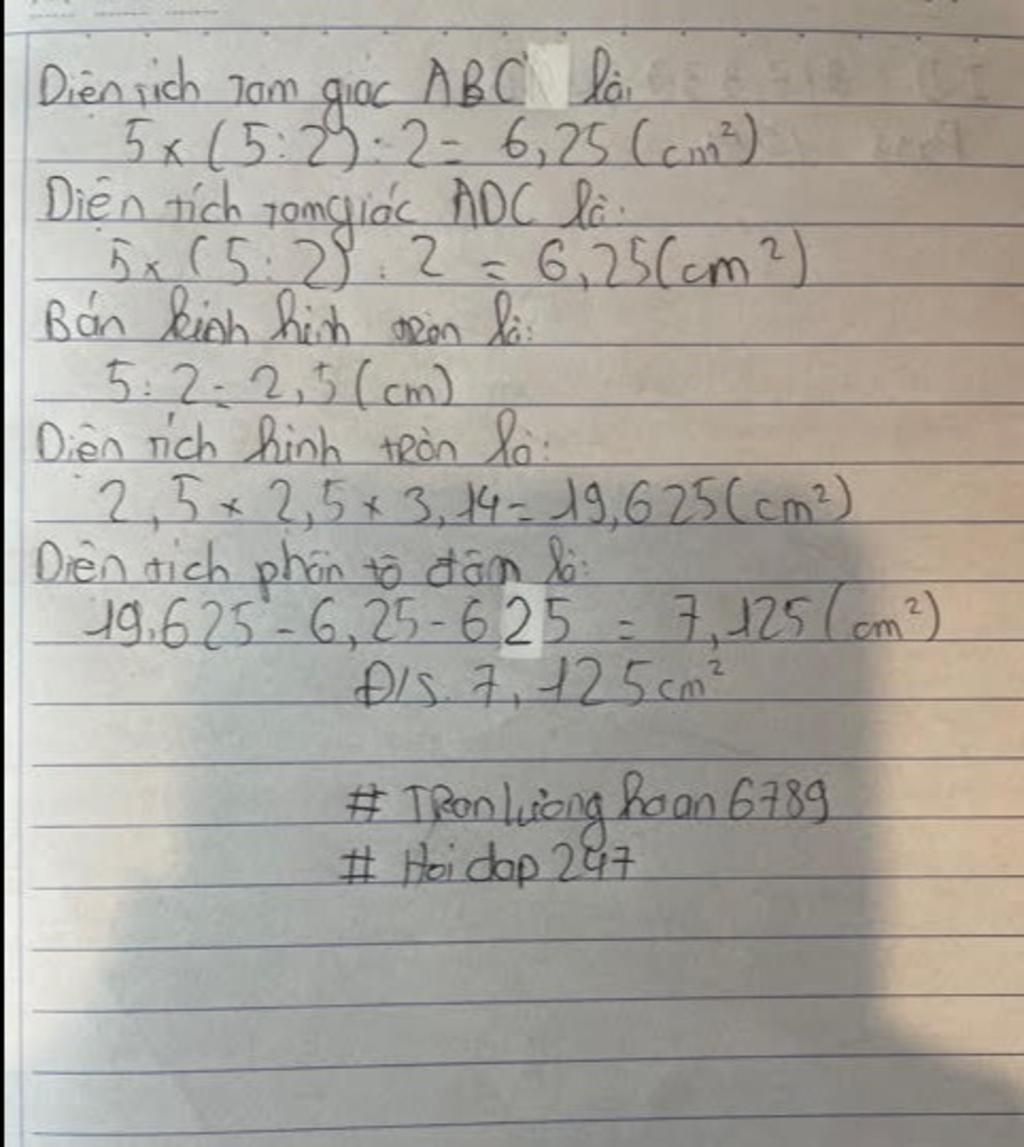 Diện tích tam giác ABC là
5 x (5:2) : 2 = 6,25 (cm²)
Diện tích tam giác ADC là:
5 x (5:2) : 2 = 6,25 (cm²)
Bán kính hình tròn là:
5 : 2 = 2,5 (cm)
Diện tích hình tròn là:
2,5 x 2,5 x 3,14 = 19,625 (cm²)
Diện tích phần tô đậm là:
19,625 - 6,25 - 625 = 7,125 (cm²)
Đ/S. 7,125 cm²
# Tranlưònghoan6789
# Hoidap247